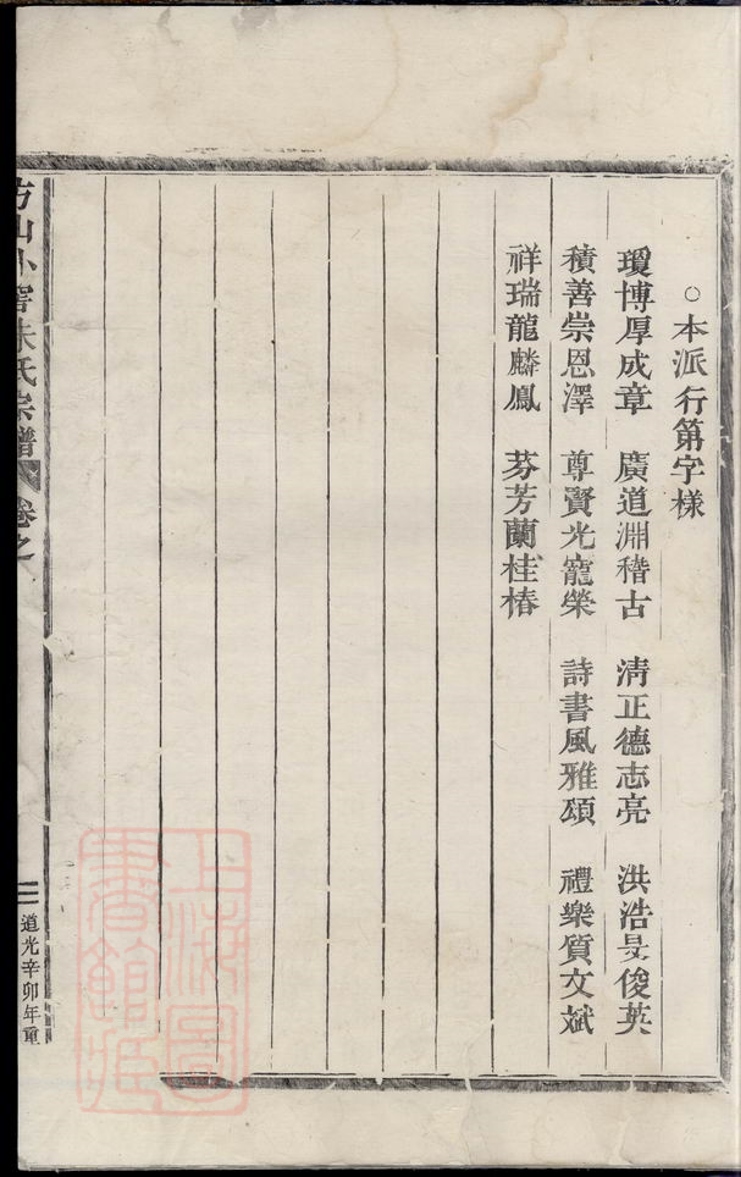 ○本派行第字樣
瓊博厚成章 廣道淵稽古 清正德志亮 洪浩旻俊英
積善崇恩澤 尊賢光寵榮 詩書風雅頌 禮樂質文斌
祥瑞龍麟鳳 芬芳蘭桂椿
方山外窖朱氏宗譜 卷之
二 道光辛卯年重
上海圖
書館